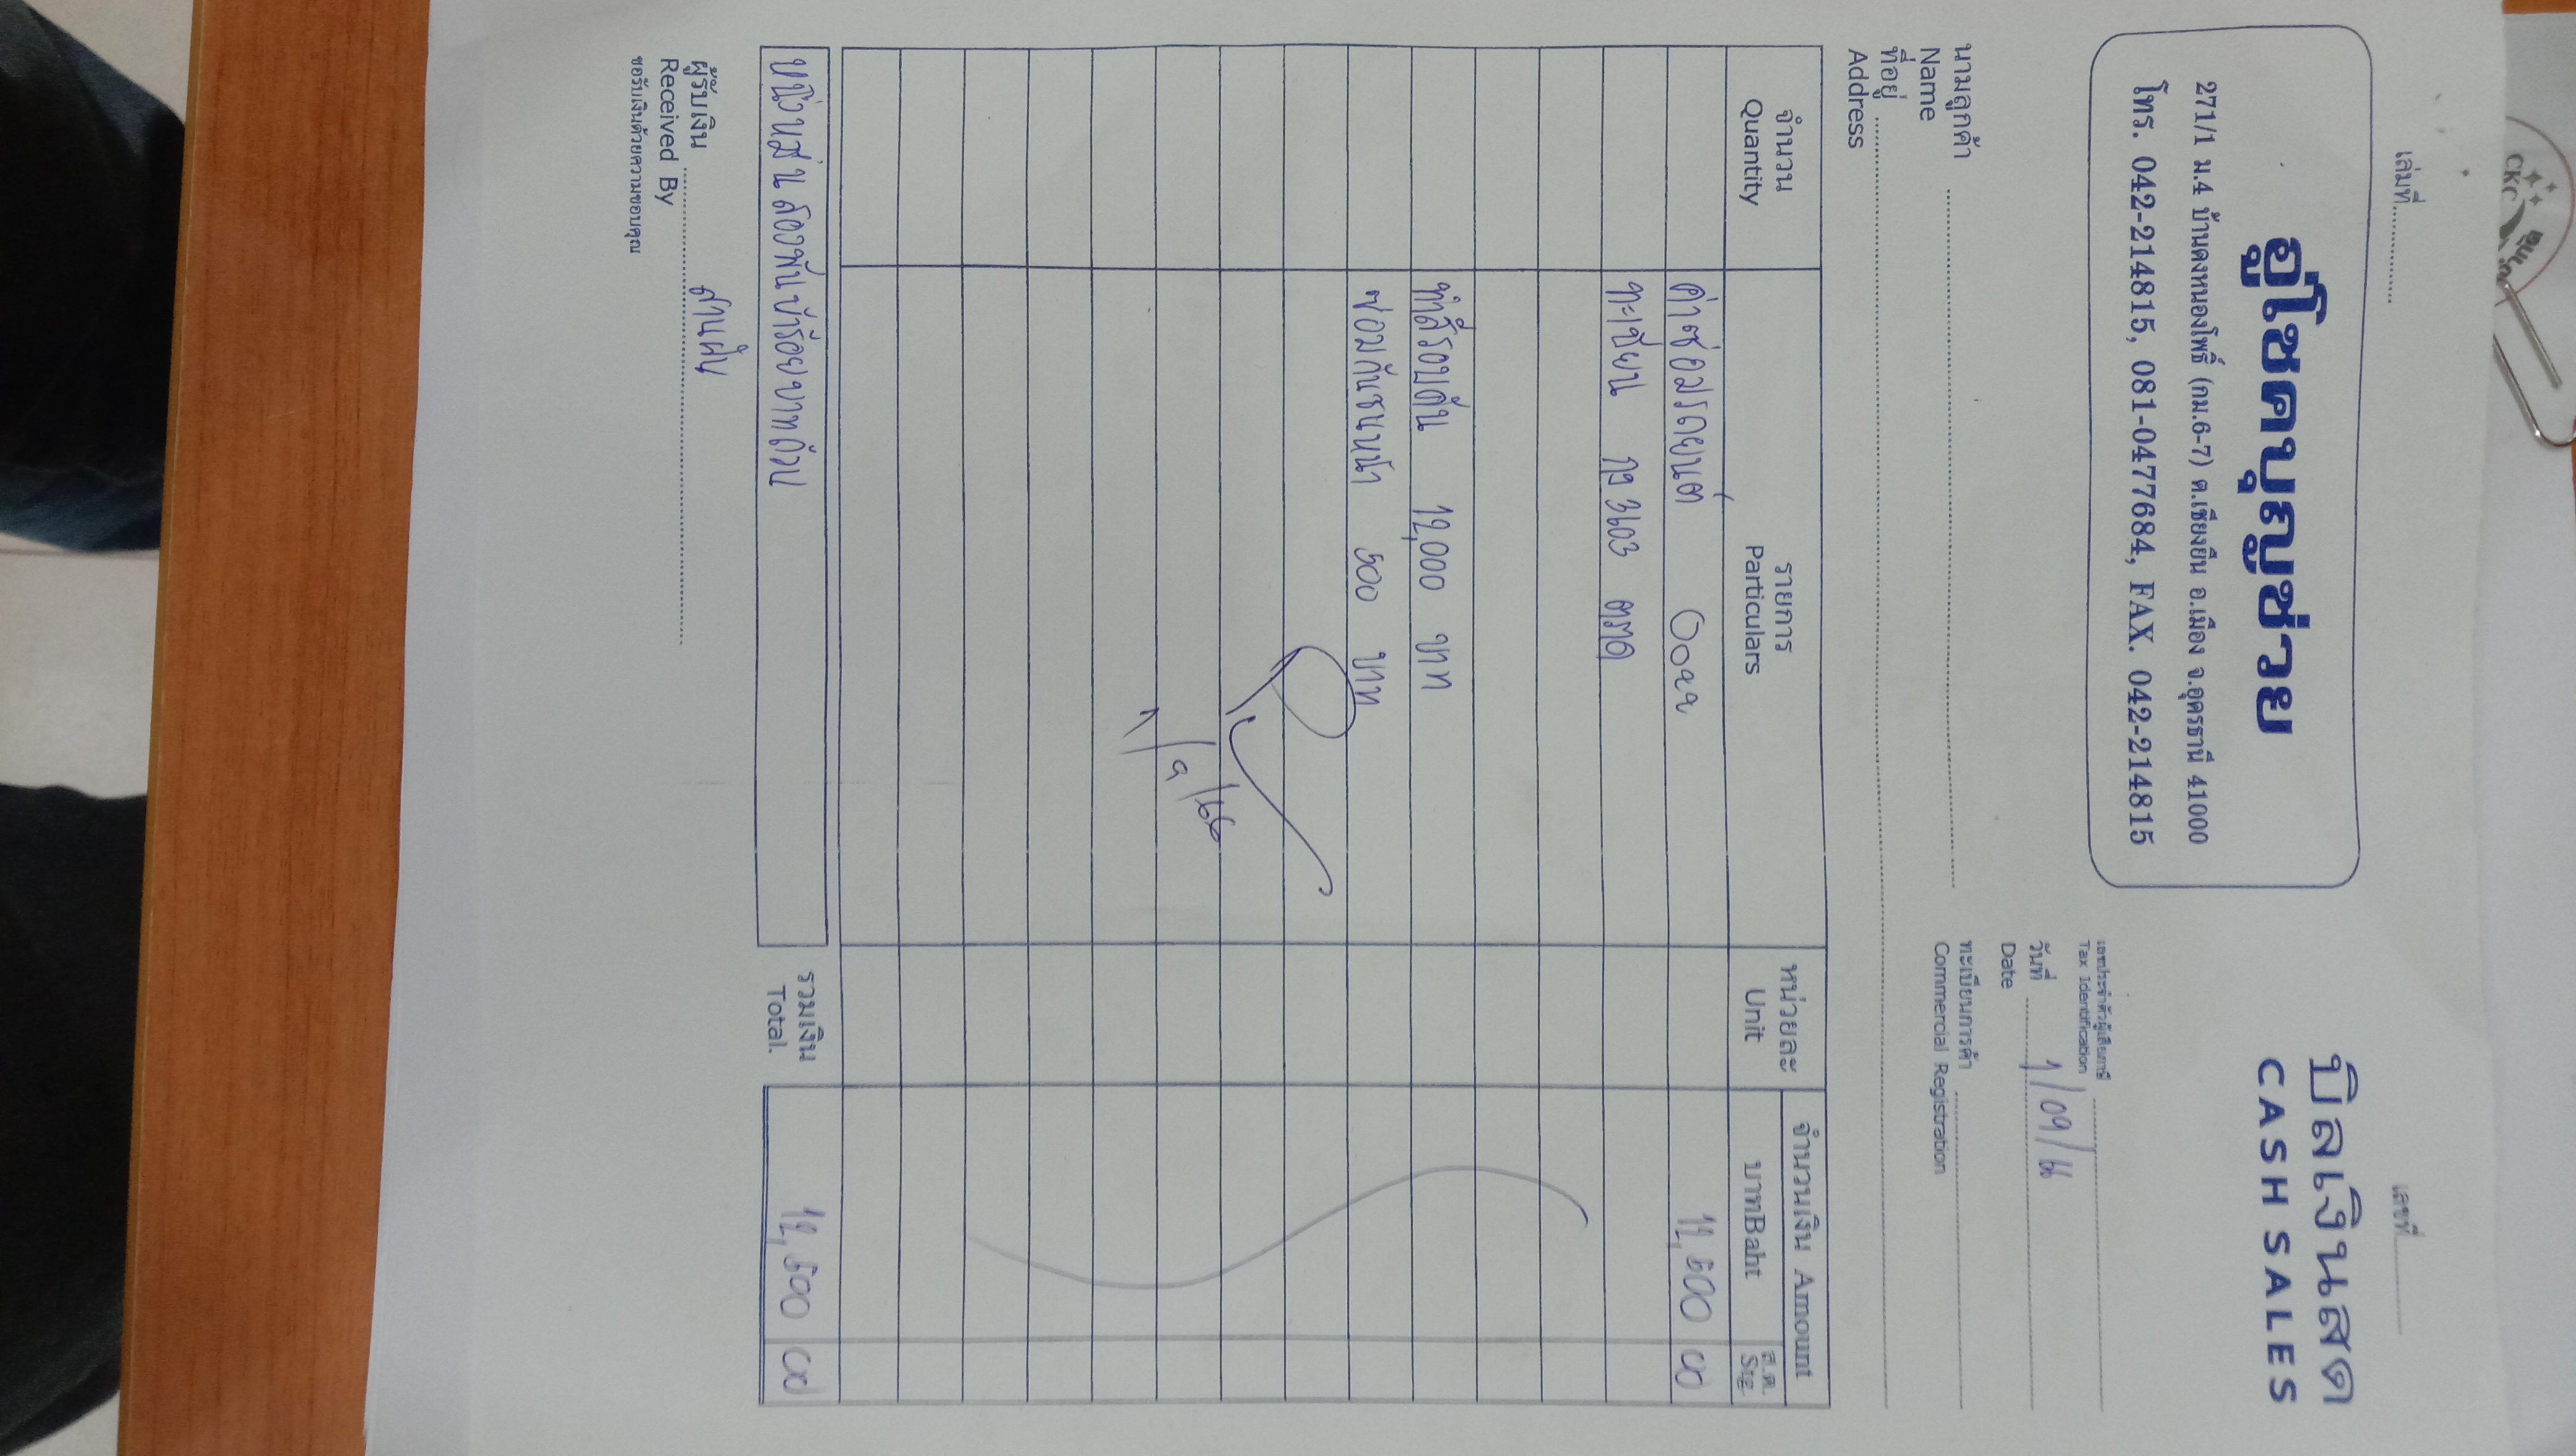 เล่มที่............
เลขที่............
อู่โชคบุญช่วย
271/1 ม.4 บ้านดงหนองโพธิ์ (กม.6-7) ต.เชียงยืน อ.เมือง จ.อุดรธานี 41000
โทร. 042-214815, 081-0477684, FAX. 042-214815
บิลเงินสด
CASH SALES
เลขประจำตัวผู้เสียภาษี
Tax Identification
วันที่ 1/09/66
Date
นามลูกค้า
Name
ทะเบียนการค้า
Commercial Registration
ที่อยู่
Address
จำนวน รายการ หน่วยละ จำนวนเงิน Amount
Quantity Particulars Unit บาทBaht ส.ต. Stg.
ค่าซ่อมรถยนต์ 12,500 00
ทะเบียน 3603
ทำสีรอบคัน 12,000 บาท
ซ่อมกันชนหน้า 500 บาท
1/9/66
หนึ่งหมื่นสองพันห้าร้อยบาทถ้วน รวมเงิน 12,500 00
Total.
ผู้รับเงิน
Received By
ขอรับเงินด้วยความขอบคุณ
CKC